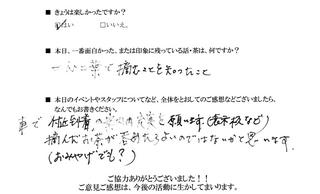 ■ きょうは楽しかったですか？
☑はい　□いいえ。
■ 本日、一番面白かった、または印象に残っている話・茶は、何ですか？
一心二葉で摘むことを知ったこと
■ 本日のイベントやスタッフについてなど、全体をとおしてのご感想などございましたら、
なんでもお書きください。
車で 付近到着の 案内 願います（表示板など）
摘んだお茶が呑めたらよいのではないかと思います。
（おみやげでも？）
ご協力ありがとうございました！
ご意見ご感想は、今後の活動に生かしてまいります。